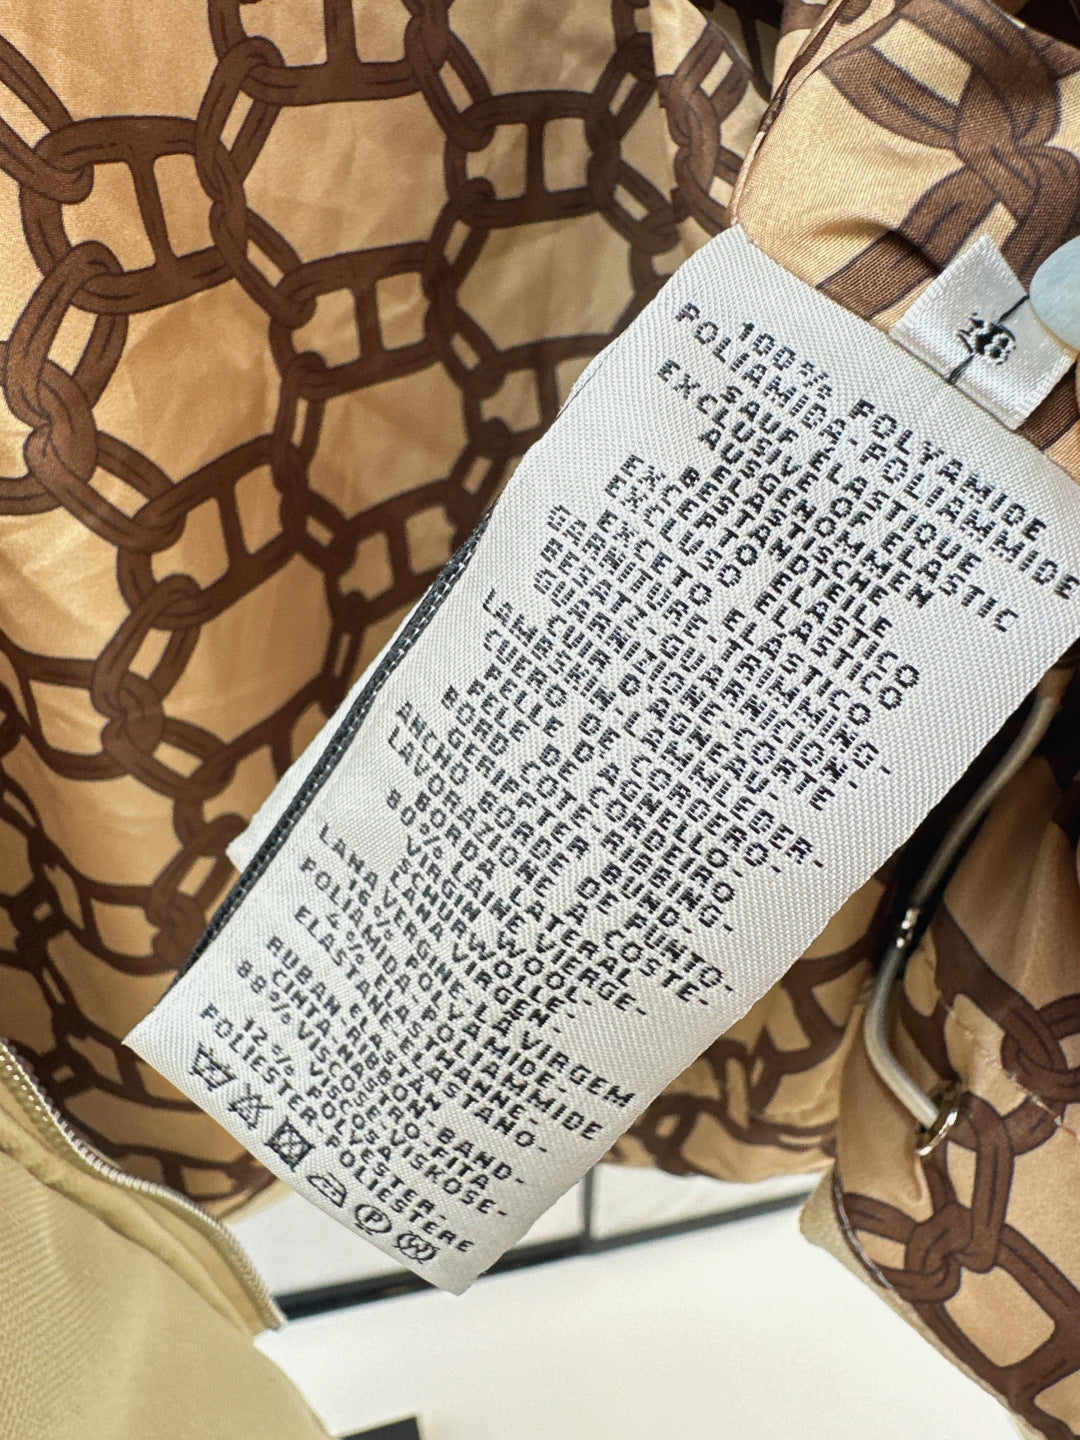 38
100% POLYAMIDE
POLIAMIDA-POLIAMMIDE
SAUF ELASTIQUE
EXCLUSIVE OF ELASTIC
AUSGENOMMEN
ELASTISCHE
BESTANDTEILE
EXCEPTO ELASTICO
EXCLUSO ELASTICO
EXCETO ELASTICO
GARNITURE-TRIMMING-
BESATZ-GUARNICION-
GUARNIZIONE-CORTE
CUIR D'AGNEAU-
LAMBSKIN-LAMMLEDER-
CUERO DE CORDERO-
PELLE D'AGNELLO-
PELE DE CORDEIRO
BORD COTE-RIBBING-
GERIFFTER BUND-
ANCHO BORDE DE PUNTO-
LAVORAZIONE A COSTE-
BORDA LATERAL
80% LAINE VIERGE-
VIRGIN WOOL-
SCHURWOLLE-
LANA VIRGEN-
LANA VERGINE-LA VIRGEM
16% POLYAMIDE-
POLIAMIDA-POLIAMMIDE
4% ELASTHANNE-
ELASTANE-ELASTANO-
ELASTAN
RUBAN-RIBBON-BAND-
CINTA-NASTRO-FITA
88% VISCOSE-VISKOSE-
VISCOSA
12% POLYESTER-
POLIESTER-POLIESTERE
P W